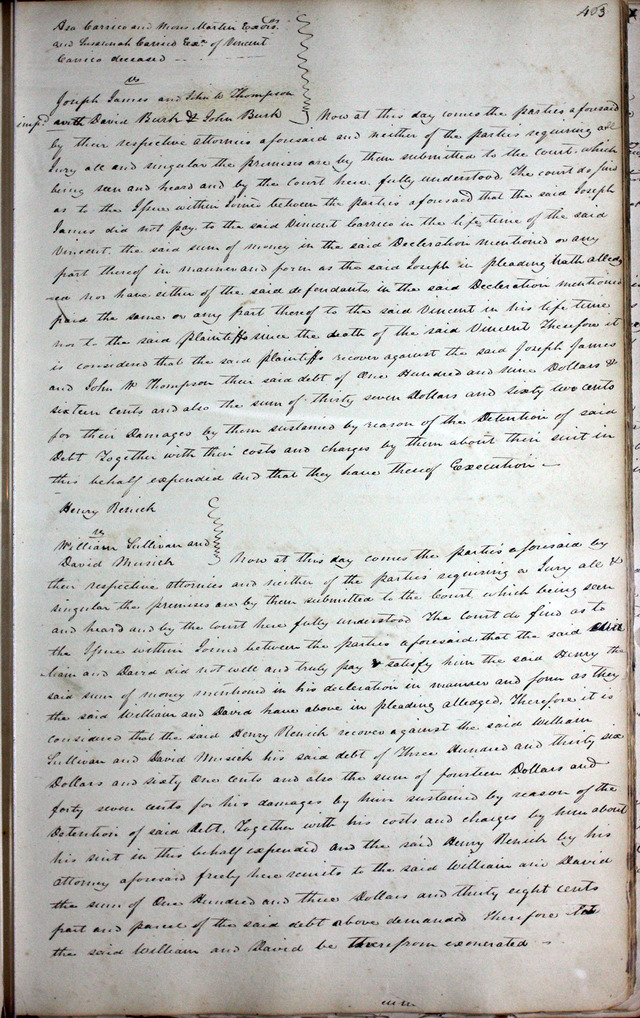 403
Asa Carrico and Moses Martin Exors
and Susannah Carrico Exx of Vincent
Carrico deceased
vs
Joseph James and John W Thompson
impd with David Burk & John Burk Now at this day comes the parties aforesaid
by their respective attornies aforesaid and neither of the parties requiring a
Jury all and singular the premises are by them submitted to the court, which
being seen and heard and by the court here fully understood. The court do find
as to the Issue within Joined between the parties aforesaid that the said Joseph
James did not pay to the said Vincent Carrico in the life time of the said
Vincent, the said sum of money in the said Declaration mentioned or any
part thereof in manner and form as the said Joseph in pleading hath alledg
-ed nor have either of the said defendants in the said Declaration mentioned
paid the same or any part thereof to the said Vincent in his life time
nor to the said Plaintiffs since the death of the said Vincent Therefore it
is considered that the said plaintiffs recover against the said Joseph James
and John W Thompson their said debt of One Hundred and nine Dollars &
sixteen cents and also the sum of thirty seven Dollars and sixty two cents
for their Damages by them sustained by reason of the Detention of said
Debt Together with their costs and charges by them about their suit in
this behalf expended and that they have thereof Execution –
Henry Renick
vs
William Sullivan and
David Musick Now at this day comes the parties aforesaid by
their respective attornies and neither of the parties requiring a Jury all &
singular the premises are by them submitted to the Court which being seen
and heard and by the court here fully understood The court do find as to
the Issue within Joined between the parties aforesaid that the said Will
liam and David did not well and truly pay & satisfy him the said Henry the
said sum of money mentioned in his decleration in manner and form as they
the said William and David have above in pleading alledged, Therefore it is
considered that the said Henry Renick recover against the said William
Sullivan and David Musick his said debt of Three Hundred and thirty six
Dollars and sixty One cents and also the sum of fourteen Dollars and
forty seven cents for his damages by him sustained by reason of the
Detention of said debt. Together with his costs and charges by him about
his suit in this behalf expended and the said Henry Renick by his
attorney aforesaid freely here remits to the said William and David
the sum of One Hundred and three Dollars and thirty eight cents
part and parcel of the said debt above demanded Therefore let
the said William and David be therefrom exonerated –